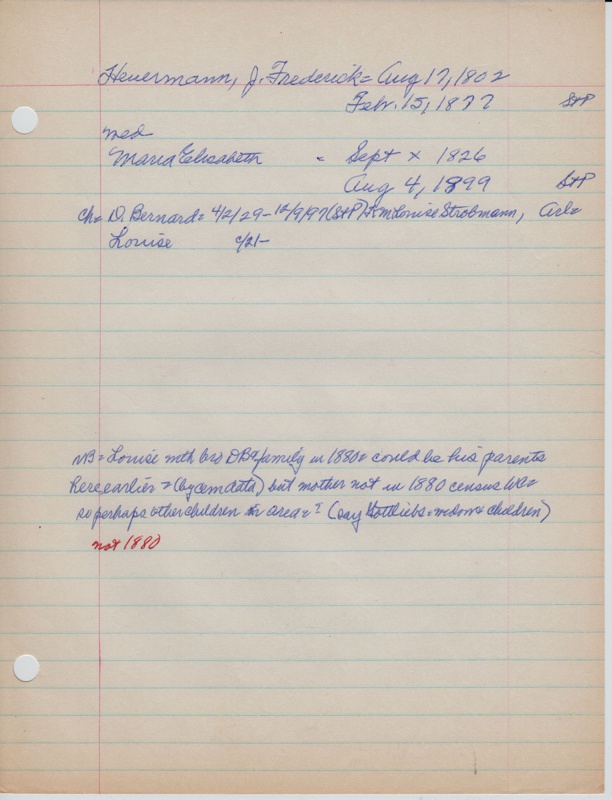 Heuermann, J. Frederick = Aug 17, 1802
Febr. 15, 1877 StP
med
Maria Elisabeth = Sept x 1826
Aug 4, 1899 StP
ch = D. Bernard = 4/2/29 - 12/9/97 (StP) m Louise Strobmann,
Louise c/21-
NB = Louise with bro DB & family in 1880 = could be his parents
here earlier = (by cem data) but mother not in 1880 census
so perhaps other children in area = ? (say Gottliebs = widow & children)
not 1880